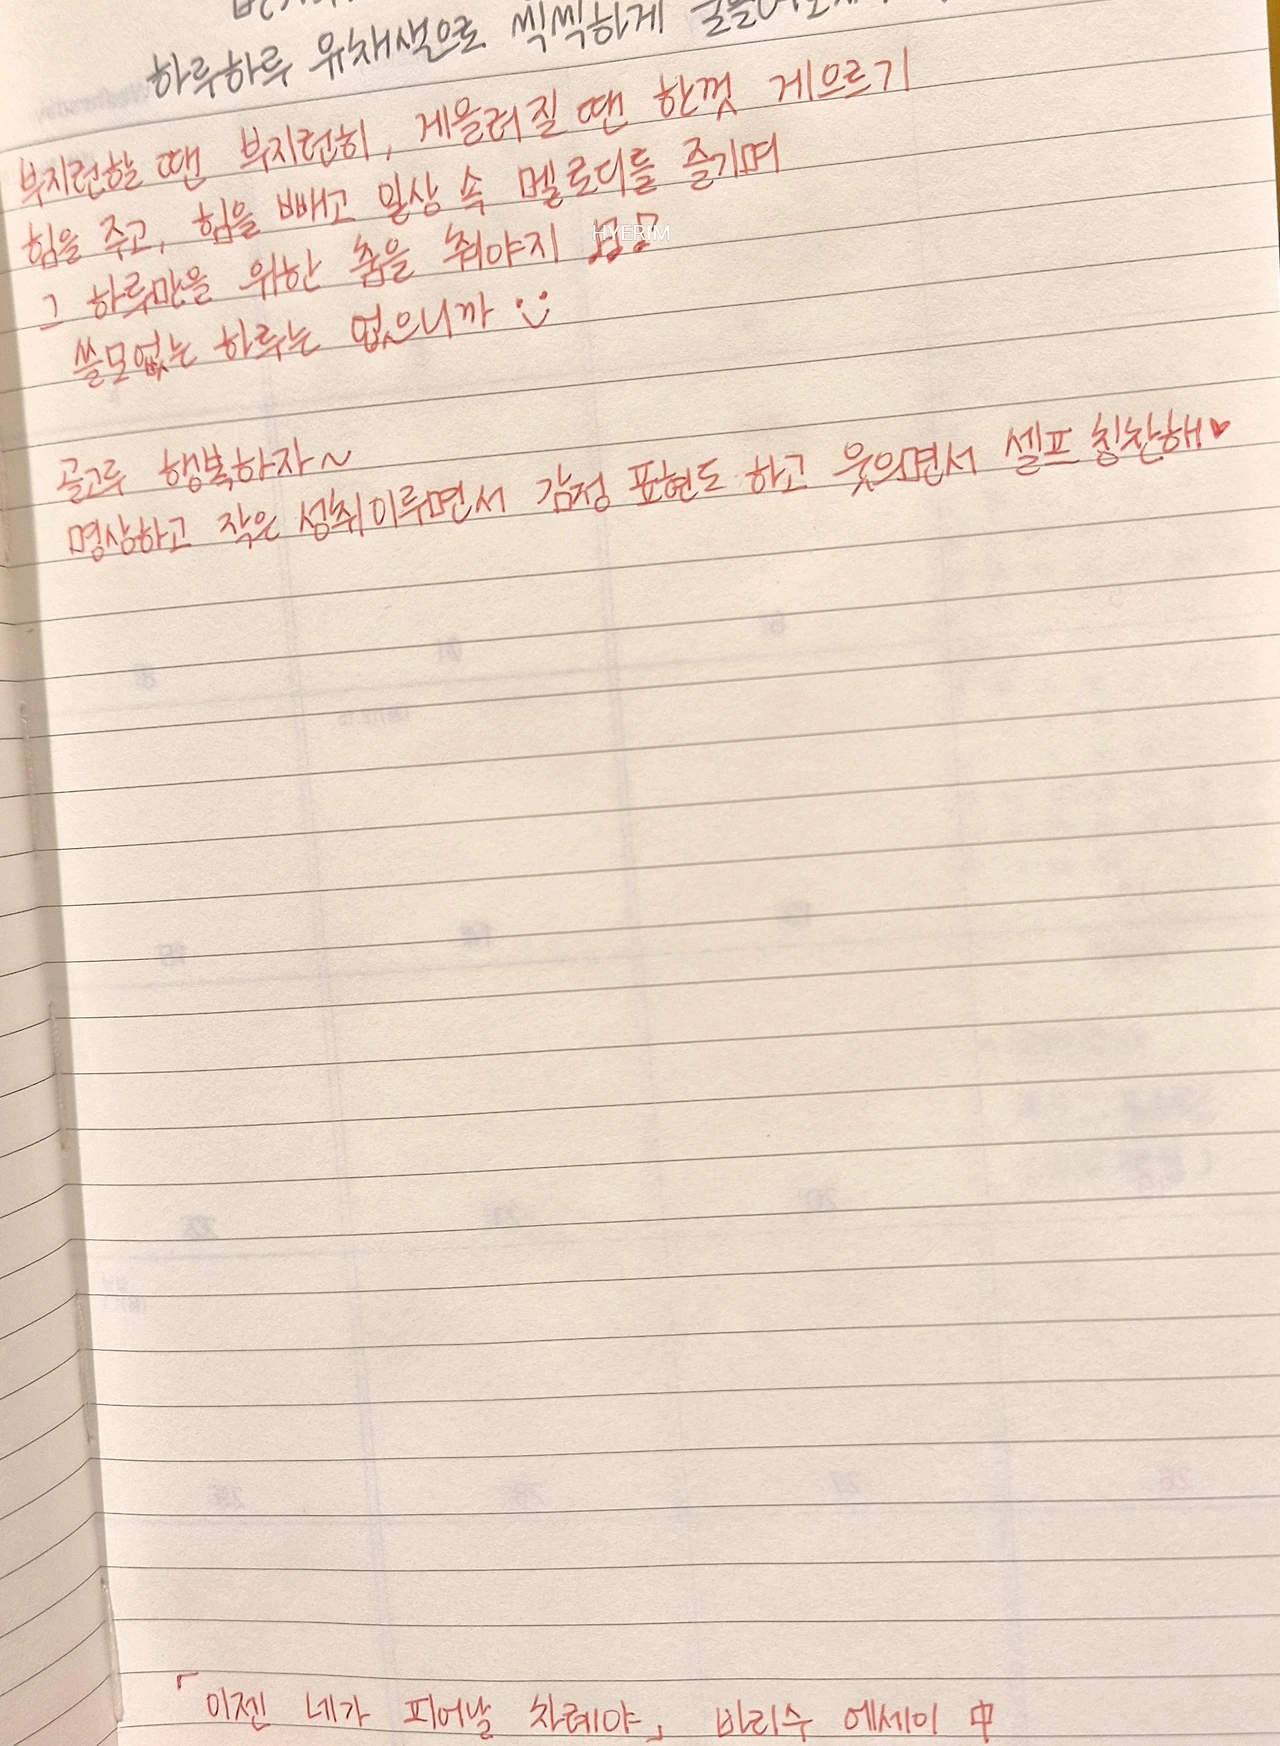 하루하루 유채색으로 씩씩하게
부지런할 땐 부지런히, 게을러질 땐 한껏 게으르기
힘을 주고, 힘을 빼고 일상 속 멜로디들 즐기며
그 하루만을 위한 춤을 춰야지 ♫♫
HYERIM
쓸모없는 하루는 없으니까
골고루 행복하자~
명상하고 작은 성취이루면서 감정 표현도 하고 웃으면서 셀프 칭찬해♥
「이젠 네가 피어날 차례야」 바리수 에세이 中